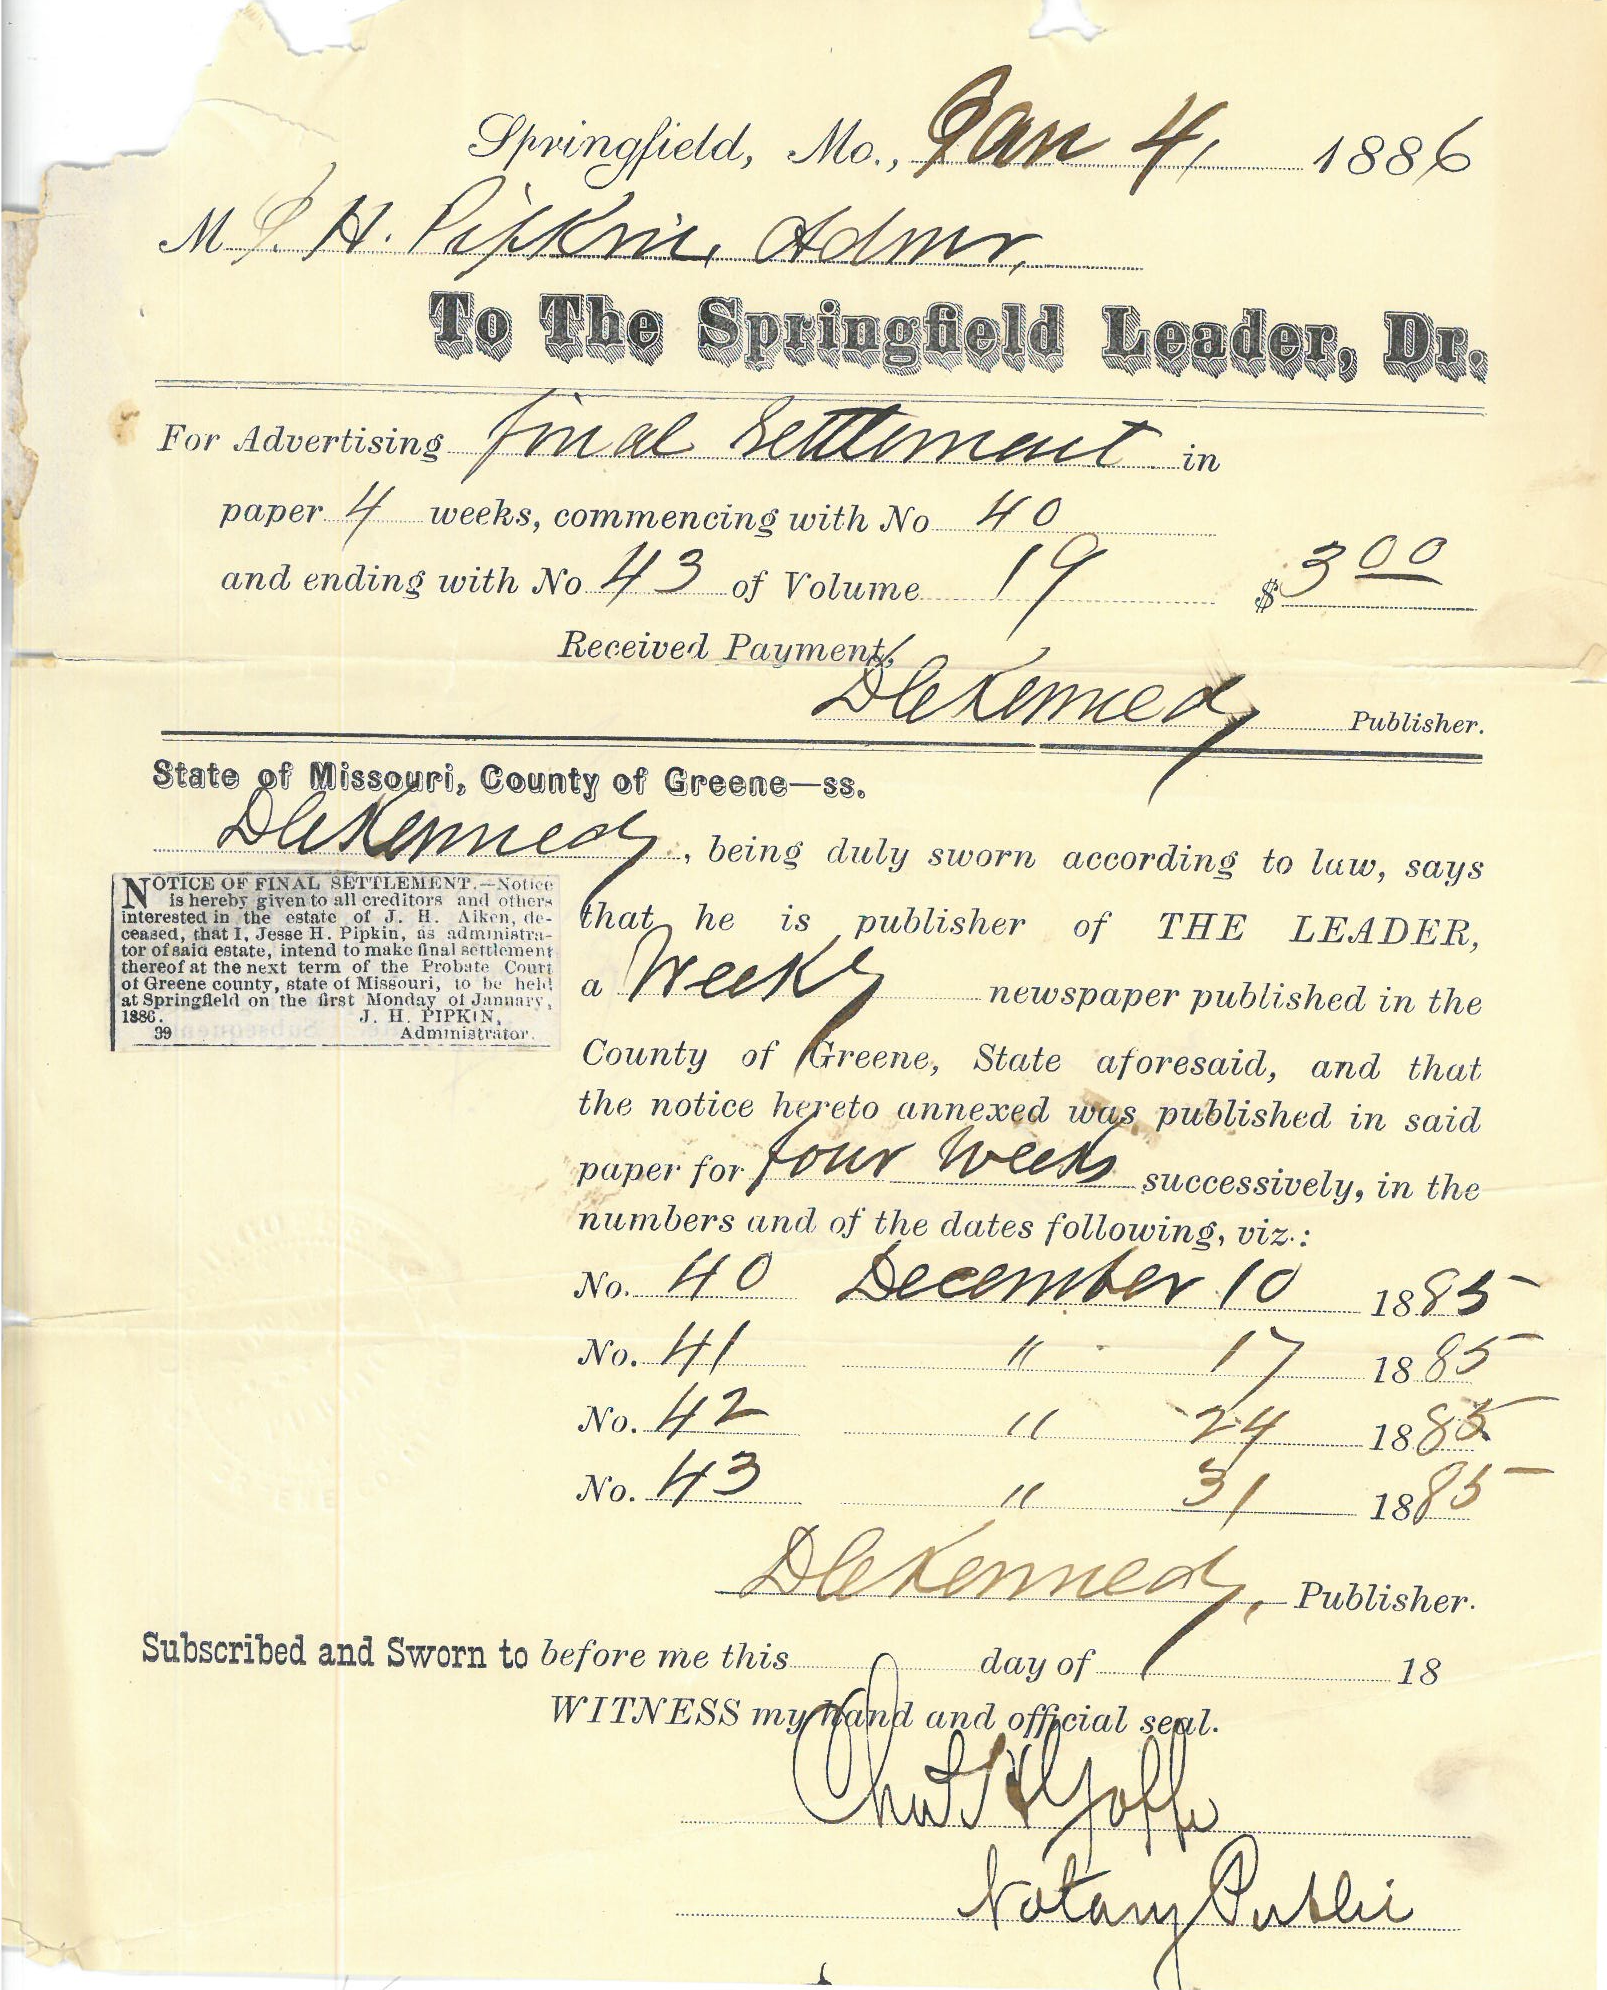 Springfield, Mo., Jan 4, 1886
M J. H. Pipkin, Admr,
To The Springfield Leader, Dr.
For Advertising final Settlement in
paper 4 weeks, commencing with No 40
and ending with No 43 of Volume 19 $3 00
Received Payment,
D C Kennedy Publisher.
State of Missouri, County of Greene—ss.
D C Kennedy, being duly sworn according to law, says
that he is publisher of THE LEADER,
a Weekly newspaper published in the
County of Greene, State aforesaid, and that
the notice hereto annexed was published in said
paper for four weeks successively, in the
numbers and of the dates following, viz.:
NOTICE OF FINAL SETTLEMENT.—Notice
is hereby given to all creditors and others
interested in the estate of J. H. Aiken, de-
ceased, that I, Jesse H. Pipkin, as administra-
tor of said estate, intend to make final settlement
thereof at the next term of the Probate Court
of Greene county, state of Missouri, to be held
at Springfield on the first Monday of January,
1886. J. H. PIPKIN,
39 Administrator.
No. 40 December 10 1885
No. 41 " 17 1885
No. 42 " 24 1885
No. 43 " 31 1885
D C Kennedy, Publisher.
Subscribed and Sworn to before me this day of 18
WITNESS my hand and official seal.
Notary Public